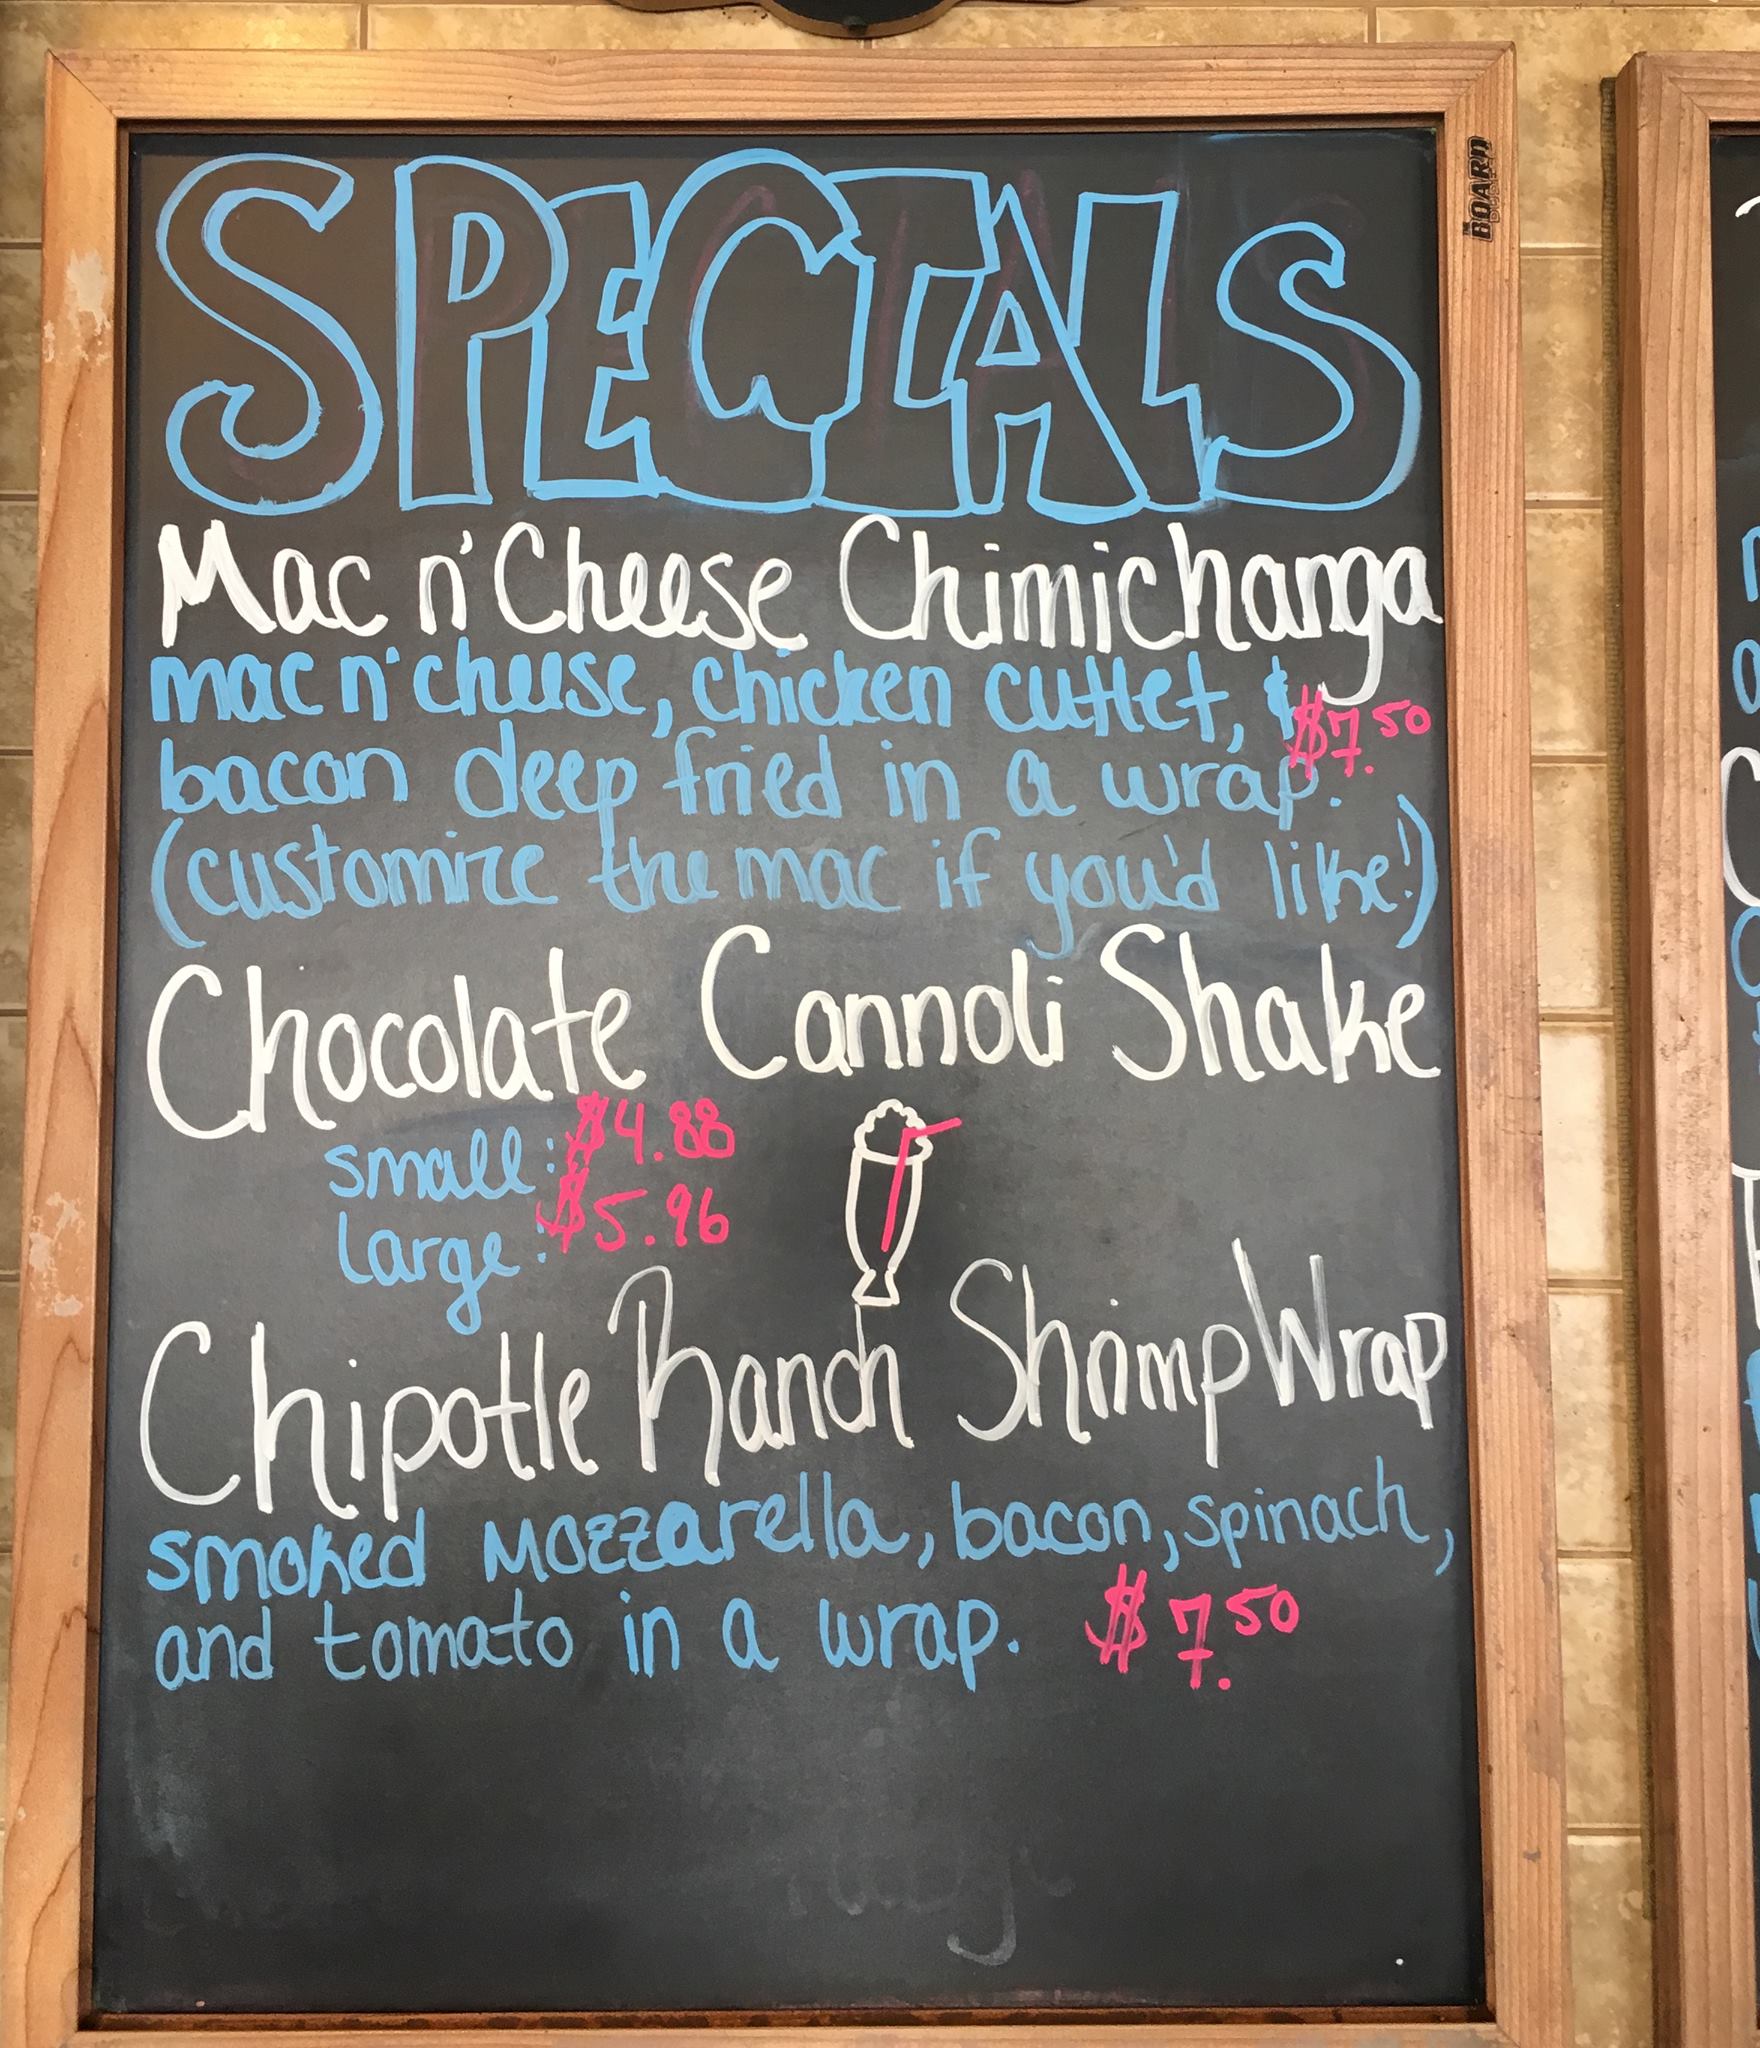 THE BOARD
SPECIALS
Mac n' Cheese Chimichanga
mac n' cheese, chicken cutlet, &
$7.50
bacon deep fried in a wrap.
(customize the mac if you'd like!)
Chocolate Cannoli Shake
small: $4.88
large: $5.96
Chipotle Ranch Shrimp Wrap
smoked mozzarella, bacon, spinach,
and tomato in a wrap. $7.50